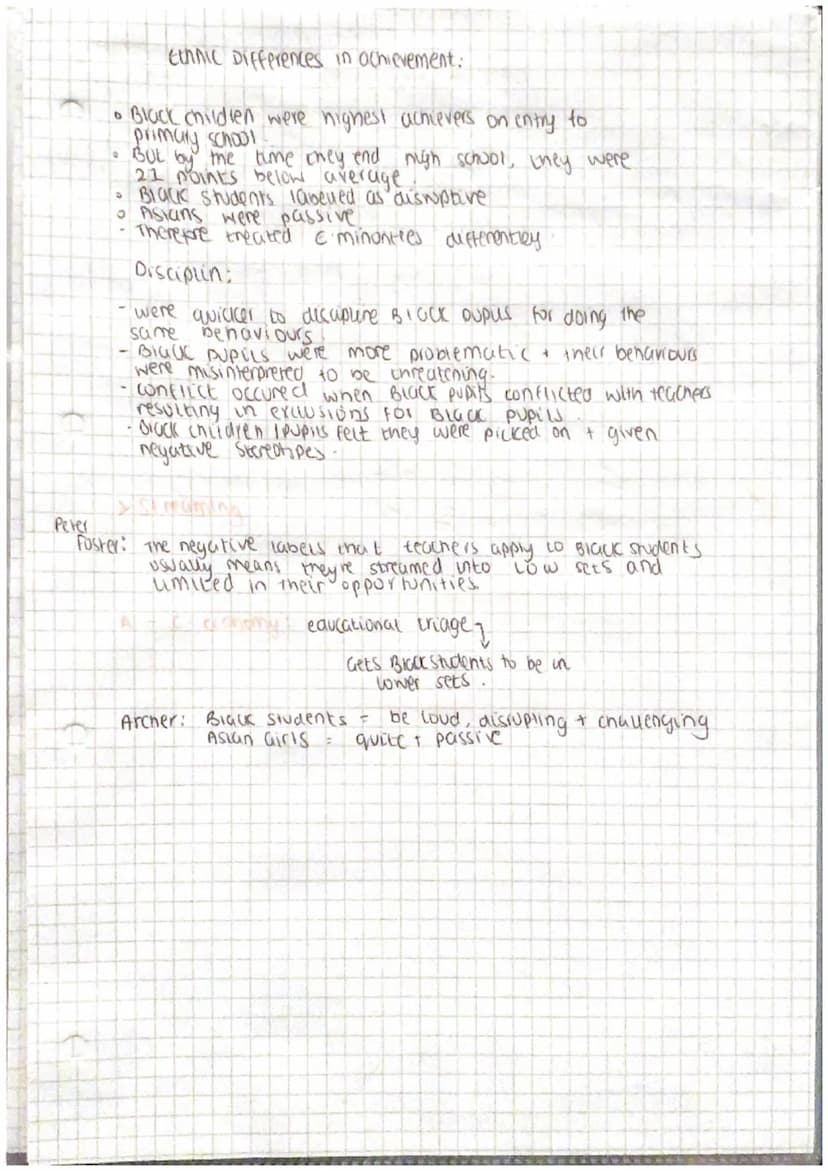 Ethnic Differences in achievement:
• Black children were highest achievers on entry to
primary school.
• But by the time they end high school, they were
21 points below average.
• Black students labelled as disruptive
• Asians were passive
- Therefore treated E. minorities differently.
Disciplin:
- were quicker to discipline Black pupils for doing the
same behaviours.
- Black pupils were more problematic + their behaviours
were misinterpreted to be threatening.
- conflict occured when Black pupils conflicted with teachers
resulting in exclusions for Black pupils.
- black children / pupils felt they were picked on + given
negative stereotipes.
> Streaming
Peter
Foster: The negative labels that teachers apply to Black students
usually means they're streamed into low sets and
limited in their opportunities.
A - C economy: educational triage
Gets Black students to be in
lower sets.
Archer: Black students = be loud, disrupting + challenging
Asian Girls = quite + passive